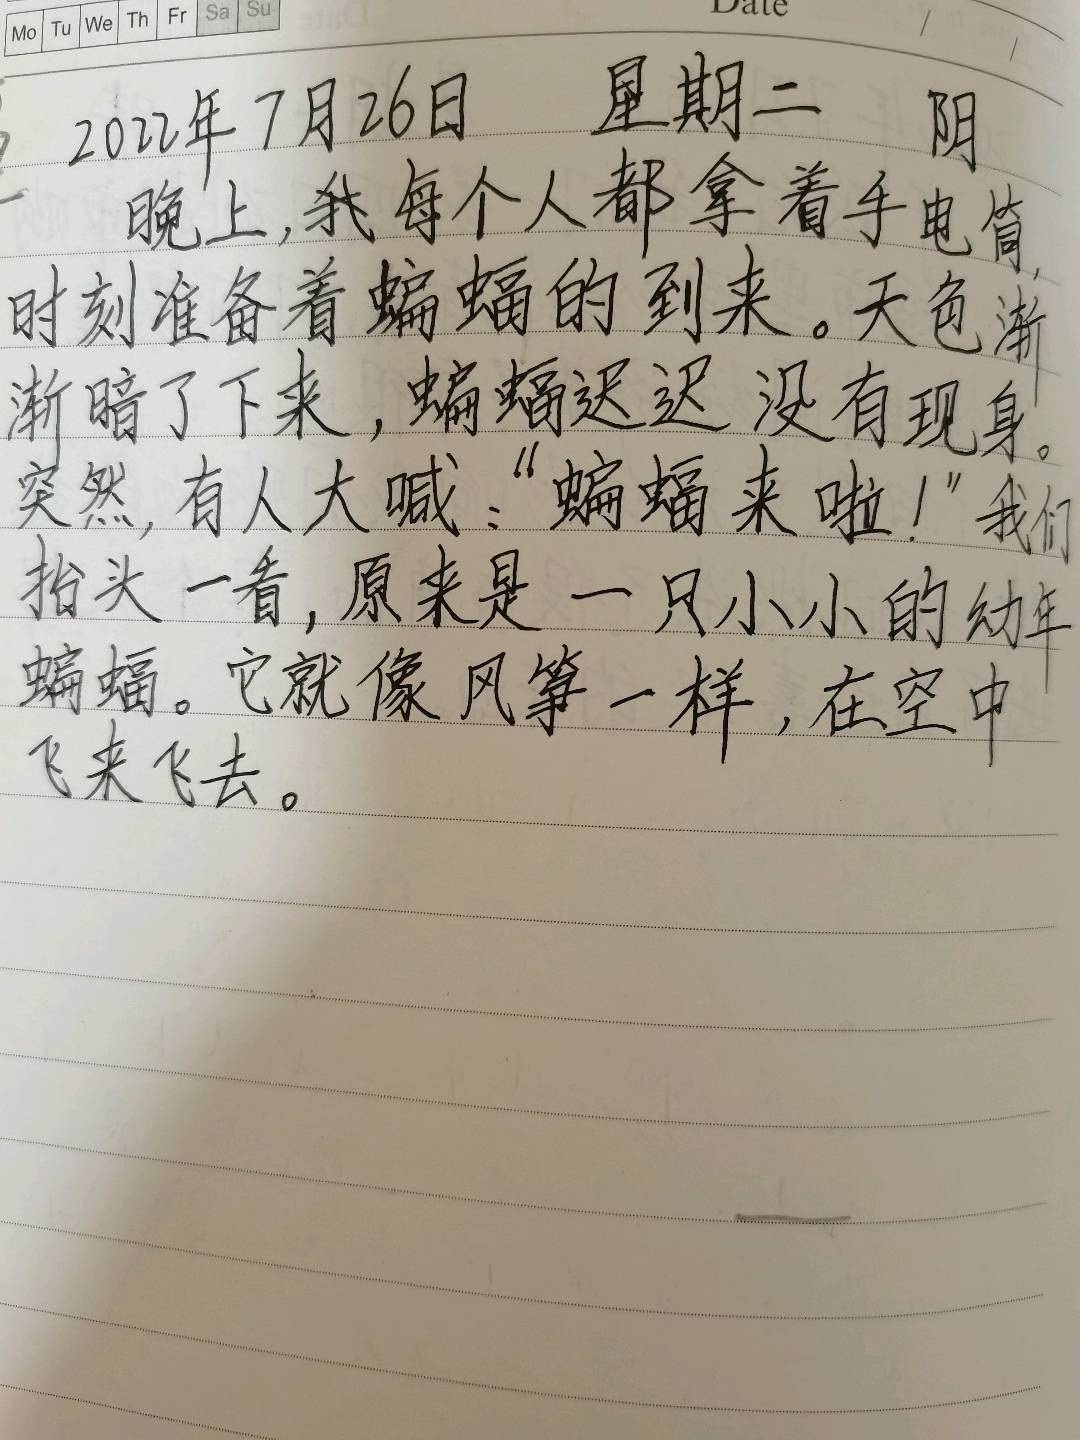 Mo Tu We Th Fr Sa Su Date / /
2022年7月26日 星期二 阴
晚上,我每个人都拿着手电筒,
时刻准备着蝙蝠的到来。天色渐
渐暗了下来,蝙蝠迟迟没有现身。
突然,有人大喊:“蝙蝠来啦!”我们
抬头一看,原来是一只小小的幼年
蝙蝠。它就像风筝一样,在空中
飞来飞去。